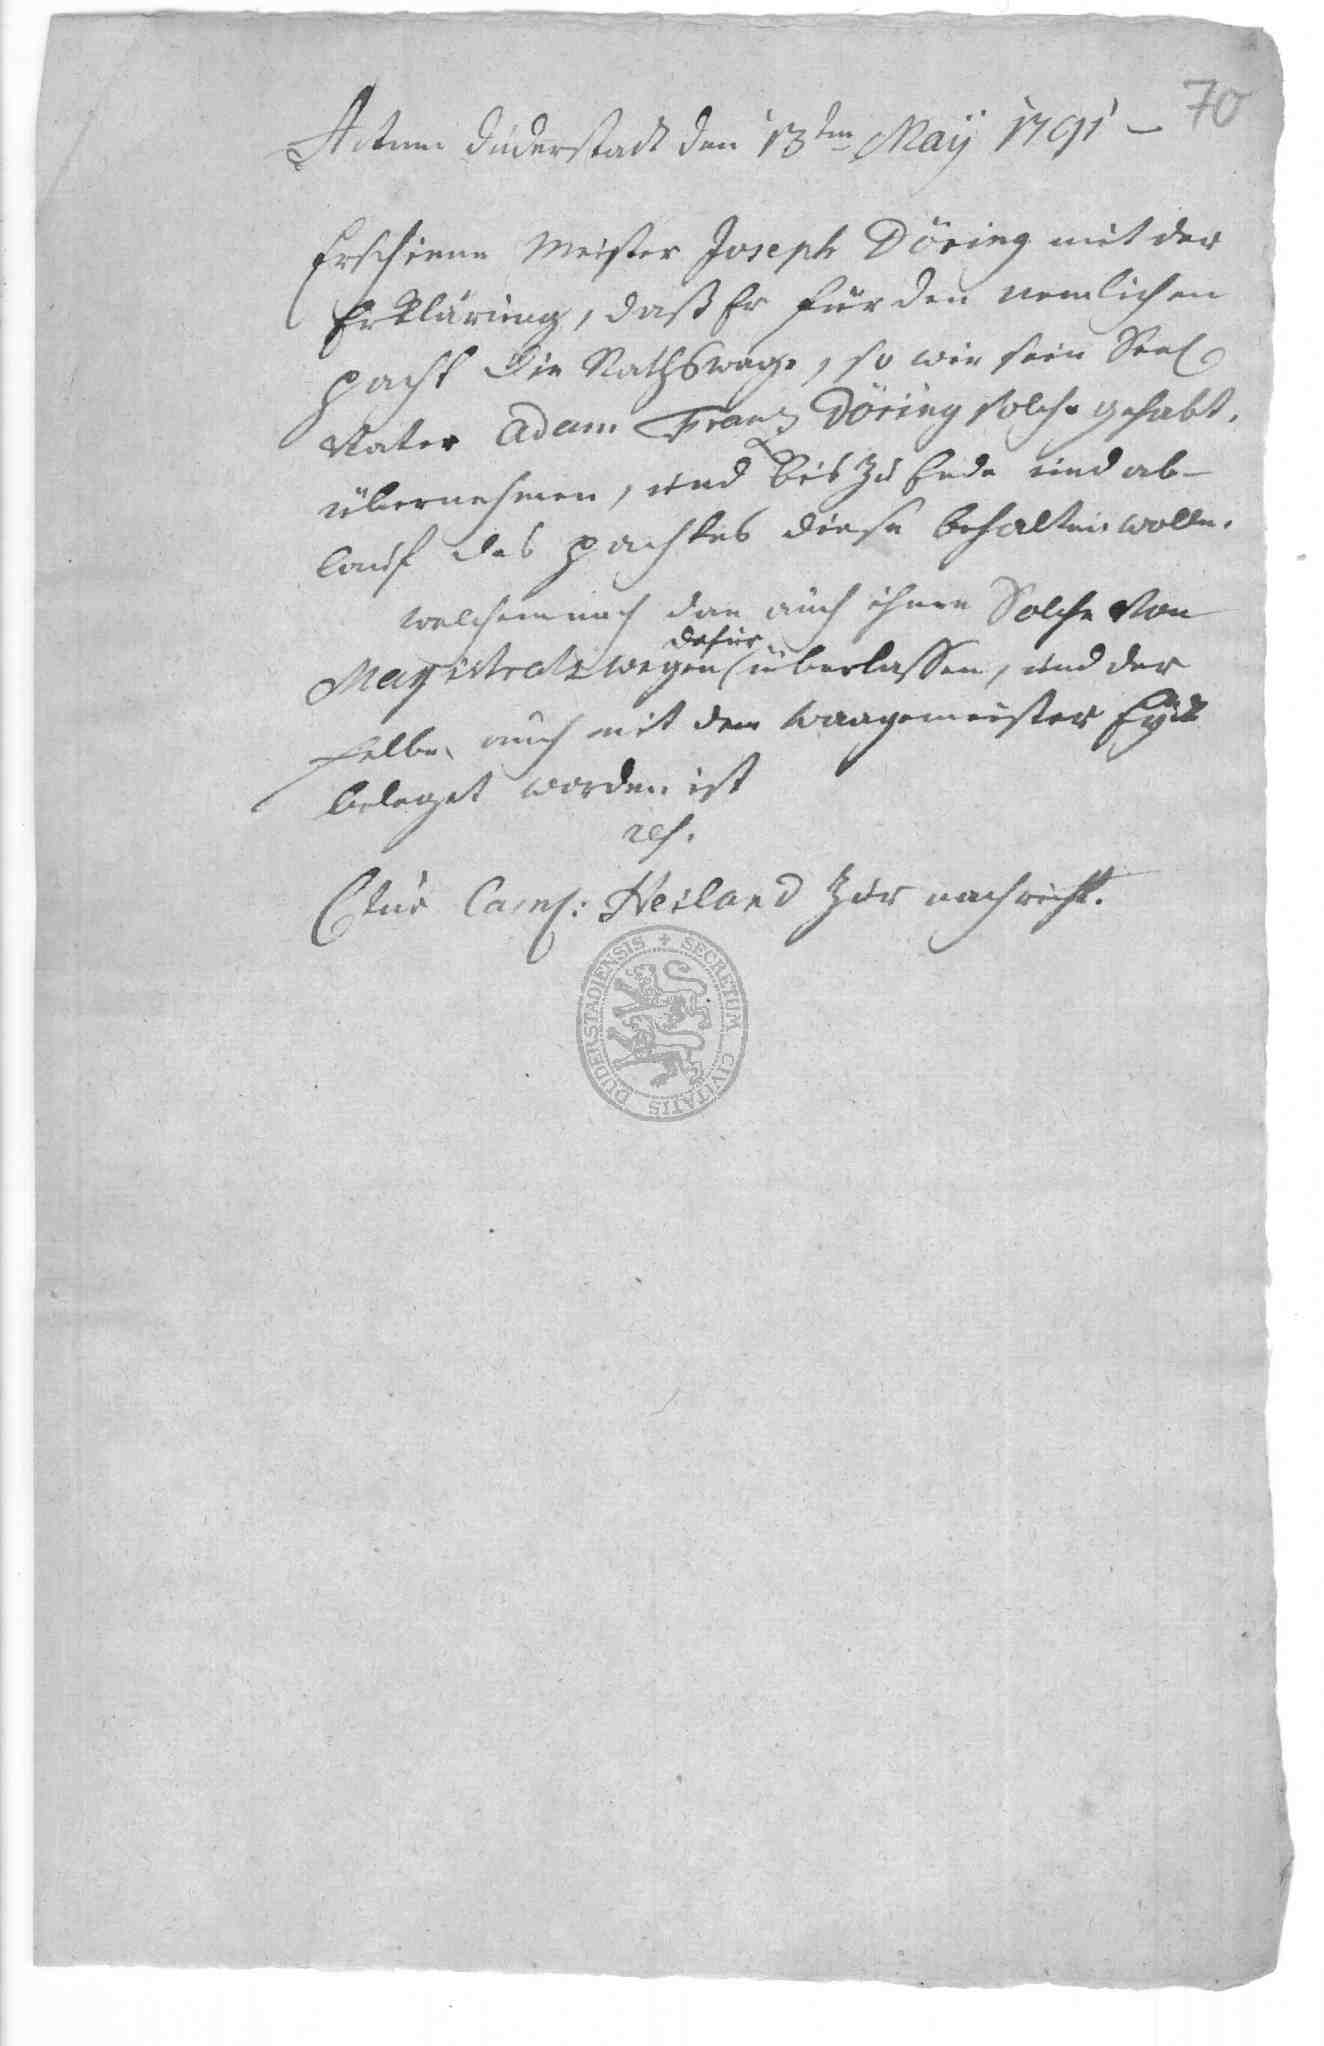 70
Actum Duderstadt den 13ten Maÿ 1791 –
Erschiene Meister Joseph Döring mit der
Erklärung, daß Er für den nemlichen
pacht die Rathswage, so wie sein Seel
Vater Adam Franz Döring solche gehabt,
übernehmen, und bis zu Ende und ab-
lauf des pachtes diese behalten wolle.
welchemnach dan auch ihme Solche von
dafür
Magistrats wegen überlassen, und der
selbe auch mit dem Waagemeister Eyd
beleget worden ist
Heiland zur nachricht.
DUDERSTADIENSIS + SECRETUM CIVITATIS